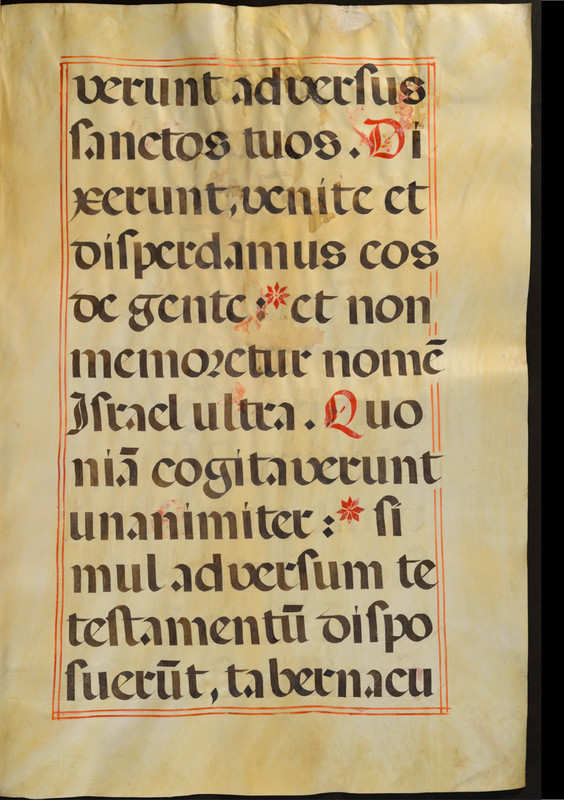 verunt adversus
ſanctos tuos. Di
xerunt, venite et
diſperdamus eos
de gente :* et non
memoꝛetur nomē
Iſrael ultra. Quo
niā cogitaverunt
unanimiter :* ſi
mul adverſum te
teſtamentū diſpo
ſuerūt, tabernacu